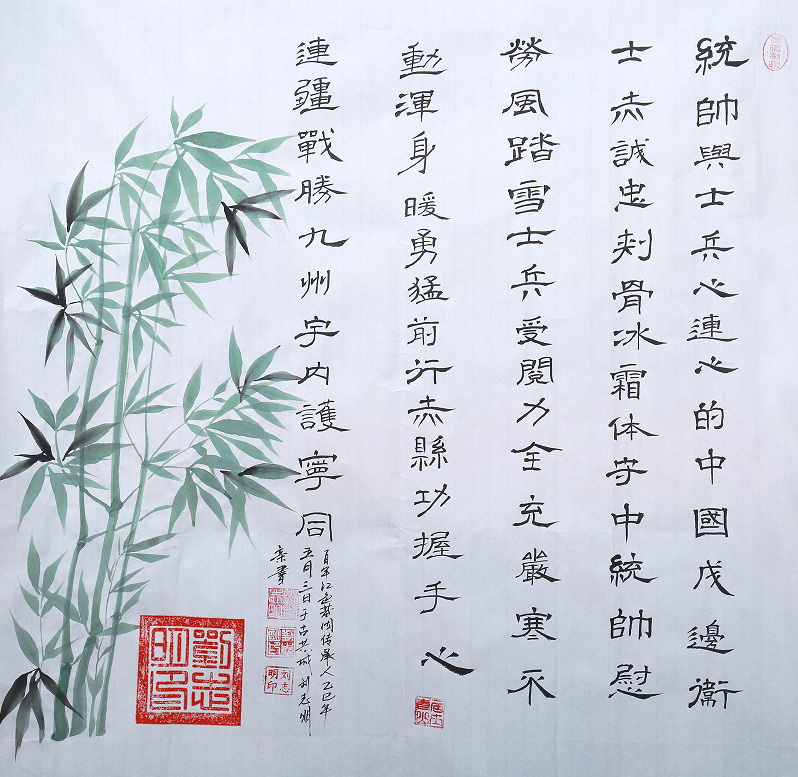 統帥與士兵心連心的中國戍邊衛
士赤誠忠刺骨冰霜体守中統帥慰
勞風踏雪士兵受閱力全充嚴寒不
動渾身暖勇猛前行赤縣功握手心
連疆戰勝九州宇内護寧同
百年传承人乙巳年
五月三日于古共城刘志明
亲書
刘志明印
劉志明印